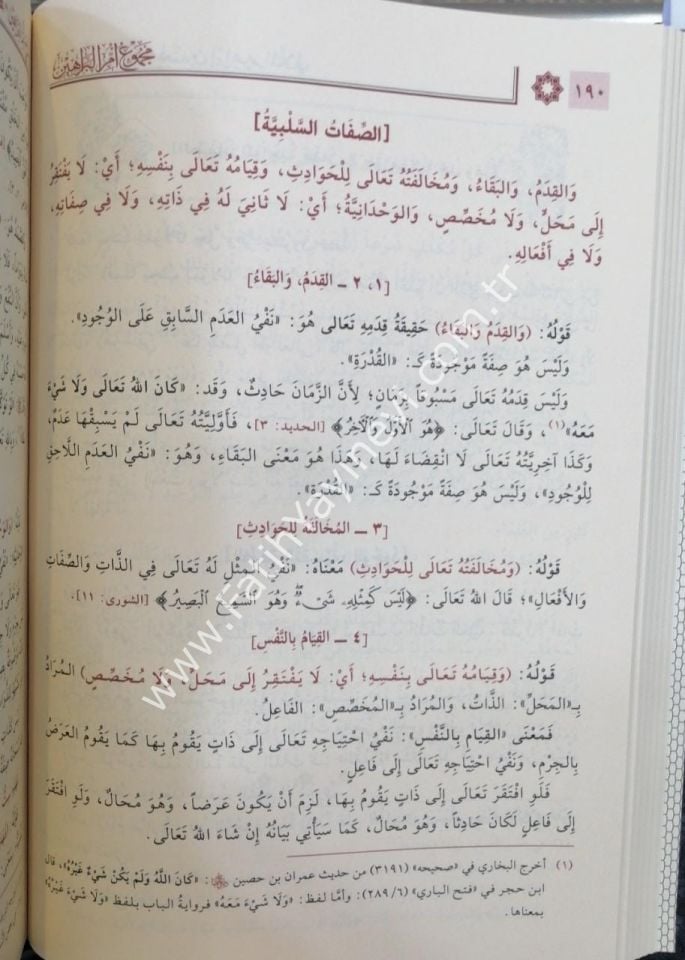 مَجْمُوعُ أُمِّ البَرَاهِين
١٩٠
[الصِّفَاتُ السَّلْبِيَّةُ]
وَالقِدَمُ، وَالبَقَاءُ، وَمُخَالَفَتُهُ تَعَالَى لِلْحَوَادِثِ، وَقِيَامُهُ تَعَالَى بِنَفْسِهِ؛ أَيْ: لَا يَفْتَقِرُ
إِلَى مَحَلٍّ، وَلَا مُخَصِّصٍ، وَالوَحْدَانِيَّةُ؛ أَيْ: لَا ثَانِيَ لَهُ فِي ذَاتِهِ، وَلَا فِي صِفَاتِهِ،
وَلَا فِي أَفْعَالِهِ.
[١، ٢ ـ القِدَمُ، وَالبَقَاءُ]
قَوْلُهُ: (وَالقِدَمُ وَالبَقَاءُ) حَقِيقَةُ قِدَمِهِ تَعَالَى هُوَ: «نَفْيُ العَدَمِ السَّابِقِ عَلَى الوُجُودِ».
وَلَيْسَ هُوَ صِفَةً مَوْجُودَةً كَـ: «القُدْرَةِ».
وَلَيْسَ قِدَمُهُ تَعَالَى مَسْبُوقاً بِزَمَانٍ؛ لِأَنَّ الزَّمَانَ حَادِثٌ، وَقَد: «كَانَ اللهُ تَعَالَى وَلَا شَيْءَ
مَعَهُ»(١)، وَقَالَ تَعَالَى: ﴿هُوَ ٱلْأَوَّلُ وَٱلْآخِرُ﴾ [الحديد: ٣]، فَأَوَّلِيَّتُهُ تَعَالَى لَمْ يَسْبِقْهَا عَدَمٌ،
وَكَذَا آخِرِيَّتُهُ تَعَالَى لَا انْقِضَاءَ لَهَا، وَهَذَا هُوَ مَعْنَى البَقَاءِ، وَهُوَ: «نَفْيُ العَدَمِ اللَّاحِقِ
لِلْوُجُودِ»، وَلَيْسَ هُوَ صِفَةً مَوْجُودَةً كَـ: «القُدْرَةِ».
[٣ ـ المُخَالَفَةُ لِلحَوَادِثِ]
قَوْلُهُ: (وَمُخَالَفَتُهُ تَعَالَى لِلْحَوَادِثِ) مَعْنَاهُ: «نَفْيُ المِثْلِ لَهُ تَعَالَى فِي الذَّاتِ وَالصِّفَاتِ
وَالأَفْعَالِ»؛ قَالَ اللهُ تَعَالَى: ﴿لَيْسَ كَمِثْلِهِۦ شَىْءٌ وَهُوَ ٱلسَّمِيعُ ٱلْبَصِيرُ﴾ [الشورى: ١١].
[٤ ـ القِيَامُ بِالنَّفْسِ]
قَوْلُهُ: (وَقِيَامُهُ تَعَالَى بِنَفْسِهِ؛ أَيْ: لَا يَفْتَقِرُ إِلَى مَحَلٍّ، وَلَا مُخَصِّصٍ) المُرَادُ
بِـ«المَحَلِّ»: الذَّاتُ، وَالمُرَادُ بِـ«المُخَصِّصِ»: الفَاعِلُ.
فَمَعْنَى «القِيَامِ بِالنَّفْسِ»: نَفْيُ احْتِيَاجِهِ تَعَالَى إِلَى ذَاتٍ يَقُومُ بِهَا كَمَا يَقُومُ العَرَضُ
بِالجِرْمِ، وَنَفْيُ احْتِيَاجِهِ تَعَالَى إِلَى فَاعِلٍ.
فَلَوِ افْتَقَرَ تَعَالَى إِلَى ذَاتٍ يَقُومُ بِهَا، لَزِمَ أَنْ يَكُونَ عَرَضاً، وَهُوَ مُحَالٌ، وَلَوِ افْتَقَرَ
إِلَى فَاعِلٍ لَكَانَ حَادِثاً، وَهُوَ مُحَالٌ، كَمَا سَيَأْتِي بَيَانُهُ إِنْ شَاءَ اللهُ تَعَالَى.
(١) أخرج البخاري في «صحيحه» (٣١٩١) من حديث عمران بن حصين ﷺ: «كَانَ اللَّهُ وَلَمْ يَكُنْ شَيْءٌ غَيْرُهُ»، قال
ابن حجر في «فتح الباري» (٢٨٩/٦): وأمَّا لفظ: «وَلَا شَيْءَ مَعَهُ» فروايةُ الباب بلفظ «وَلَا شَيْءَ غَيْرُهُ»
بمعناها.
www.fatihyayinevi.com.tr